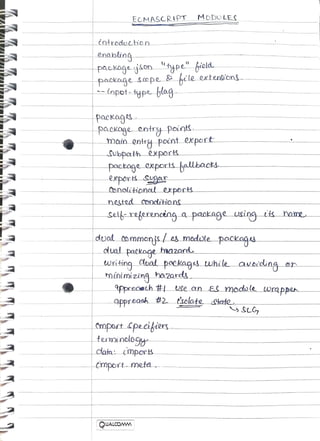 ECMASCRIPT MODULES
introduction
enabling
package.json "type" field
package scope & file extensions
--input-type flag
packages
package entry points
main entry point export
Subpath exports
package exports fallbacks
exports sugar
Conditional exports
nested conditions
self-referencing a package using its name
dual commonjs / es module packages
dual package hazard
writing dual packages while avoiding or
minimizing hazards
approach #1 use an ES module wrapper
approach #2 isolate state
import specifiers
terminology
data: imports
import.meta
QUALCOMM